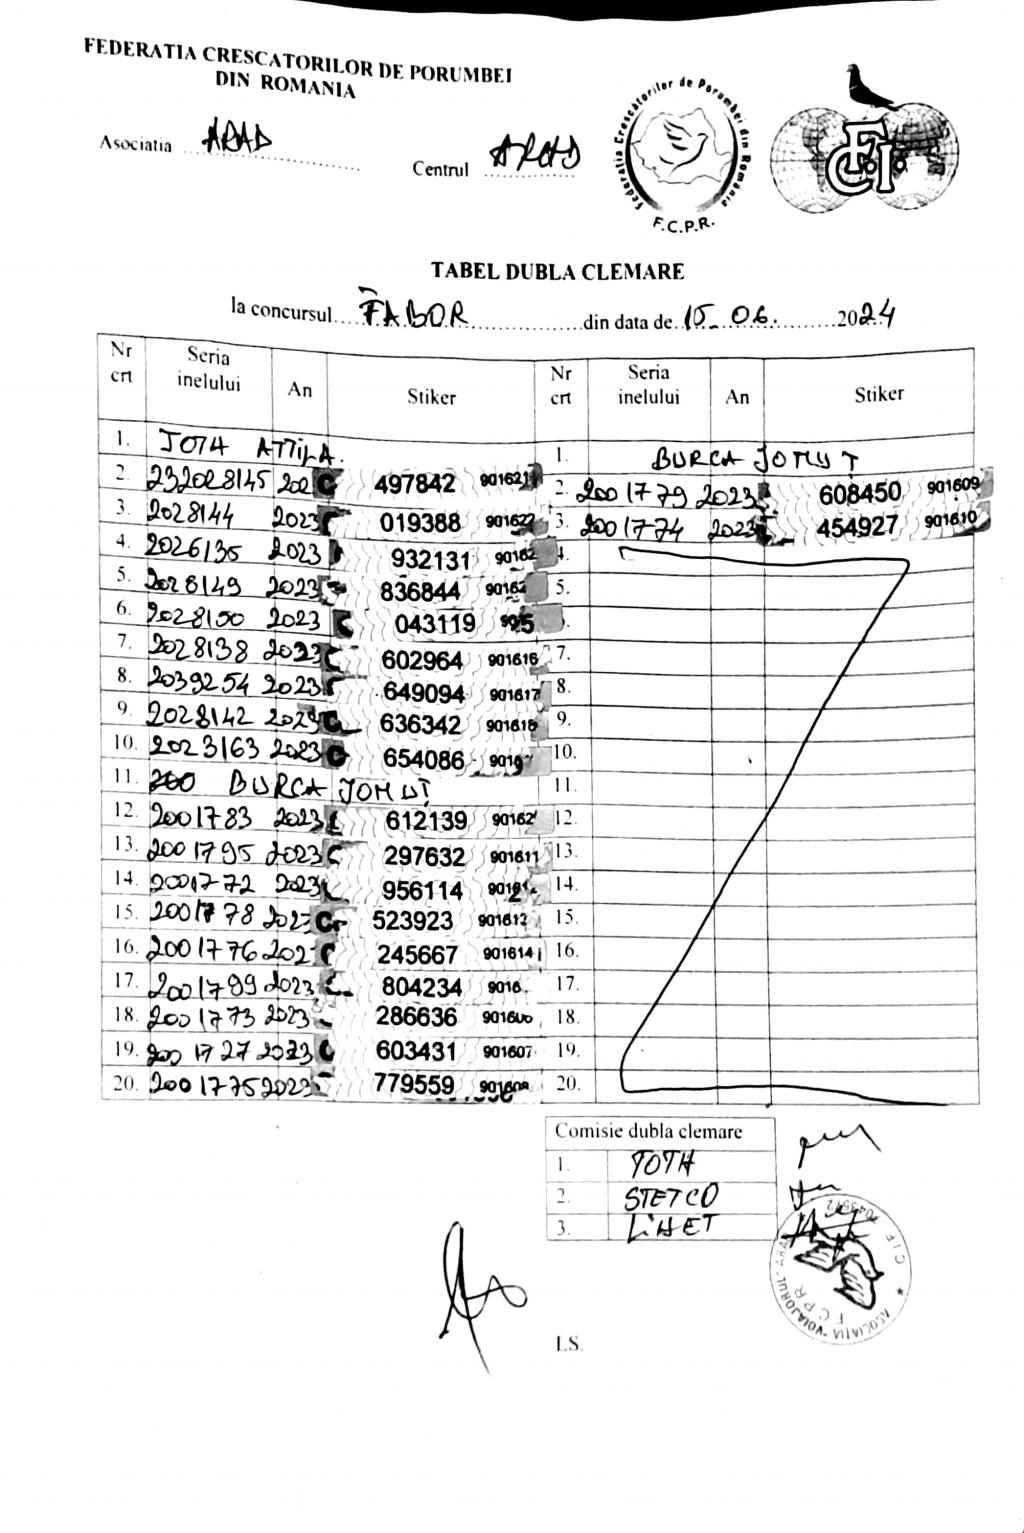 FEDERATIA CRESCATORILOR DE PORUMBEI
DIN ROMANIA
Asociatia ARAD
Centrul ARAD
Federatia Crescătorilor de Porumbei din România
F.C.P.R.
F.C.I.
TABEL DUBLA CLEMARE
la concursul TABOR din data de 15_06. 2024
Nr crt Seria inelului An Stiker Nr crt Seria inelului An Stiker
1. TOTH ATTILA. 1. BURCA IONUȚ
2. 232028145 202 C 497842 901621 2. 2001779 2023 608450 901609
3. 2028144 2023 019388 901622 3. 2001774 2023 454927 901610
4. 2026135 2023 932131 90162 4.
5. 2028149 2023 836844 90162 5.
6. 2028150 2023 C 043119
7. 2028138 2023 C 602964 901616 7.
8. 2039254 2023 649094 901617 8.
9. 2028142 2023 C 636342 901618 9.
10. 2023163 2023 C 654086 10.
11. BURCA IONUȚ 11.
12. 2001783 2023 612139 90162 12.
13. 2001795 2023 C 297632 901611 13.
14. 2001772 2023 956114 14.
15. 2001778 2023 C 523923 901612 15.
16. 2001776 202 245667 901614 16.
17. 2001799 2023 804234 9016 17.
18. 2001773 2023 286636 18.
19. 2001727 2023 C 603431 901607 19.
20. 2001775 2023 779559 901608 20.
Comisie dubla clemare
1. TOTH
2. STETCO
3. LIHET
ASOCIAȚIA "VOIAJORUL" ARAD
FCPR
CIF
LS.